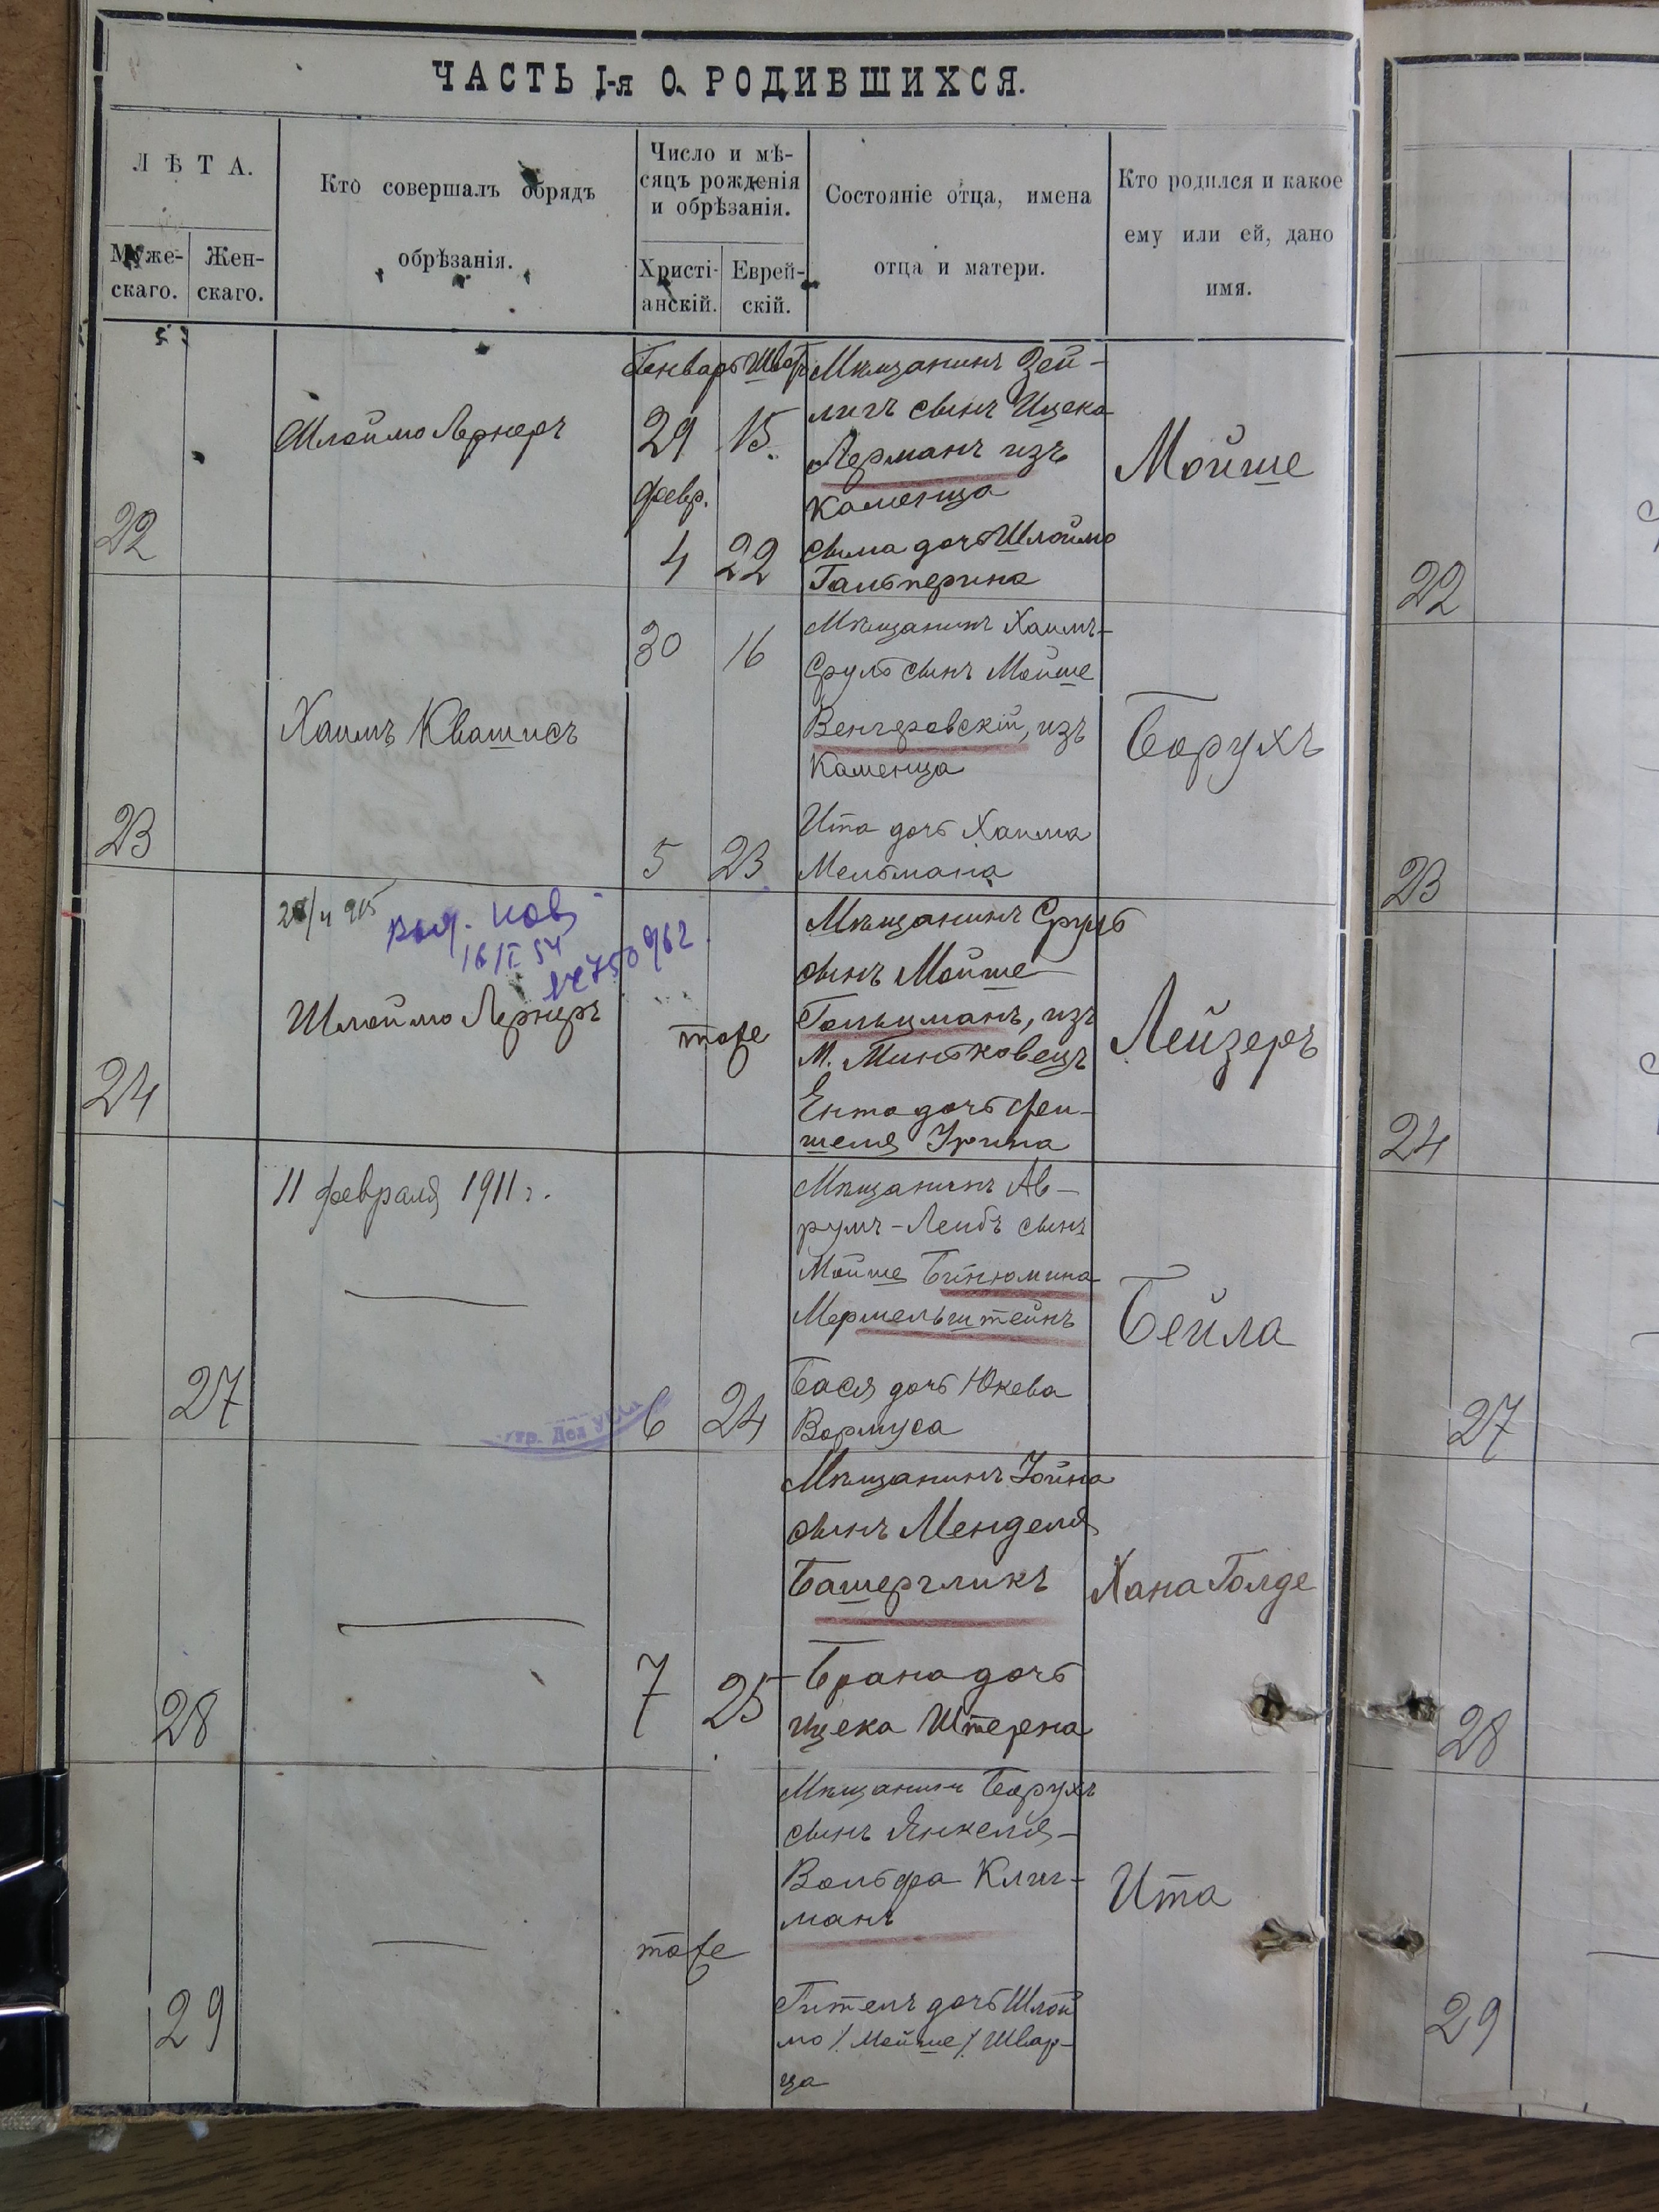 ЧАСТЬ I-я О РОДИВШИХСЯ.
ЛѢТА.
Муже-
скаго.
Жен-
скаго.
Кто совершалъ обрядъ
обрѣзанія.
Число и мѣ-
сяцъ рожденія
и обрѣзанія.
Христі-
анскій.
Еврей-
скій.
Состояніе отца, имена
отца и матери.
Кто родился и какое
ему или ей, дано
имя.
22
Шлоймо Лернеръ
Генварь
29
февр.
4
Шватъ
15
22
Мѣщанинъ Зей-
лигъ сынъ Ицека
Лерманъ изъ
Каменца
Сима дочь Шлоймо
Гальперина
Мойше
22
23
Хаимъ Квашисъ
30
16
5
23
Мѣщанинъ Хаимъ-
Сруль сынъ Мойше
Венгеровскій, изъ
Каменца
Ита дочь Хаима
Мельмана
Борухъ
23
24
905
16/I 54
№ 750962
Шлоймо Лернеръ
тоже
Мѣщанинъ Сруль
сынъ Мойше
Гольцманъ, изъ
М. Миньковецъ
Ента дочь Фи-
шеля Урина
Лейзеръ
24
27
11 февраля 1911 г.
6
24
Мѣщанинъ Ав-
румъ-Лейбъ сынъ
Мойше Бинюмина
Мермельштейнъ
Бася дочь Юкева
Вормуса
Бейла
27
28
7
25
Мѣщанинъ Іойна
сынъ Менделя
Башергликъ
Брана дочь
Ицека Штерна
Хана Голде
28
29
тоже
Мѣщанинъ Борухъ
сынъ Янкеля-
Вольфа Клиг-
манъ
Гителъ дочь Шлой
мо /Мойше/ Швар-
ца
Ита
29